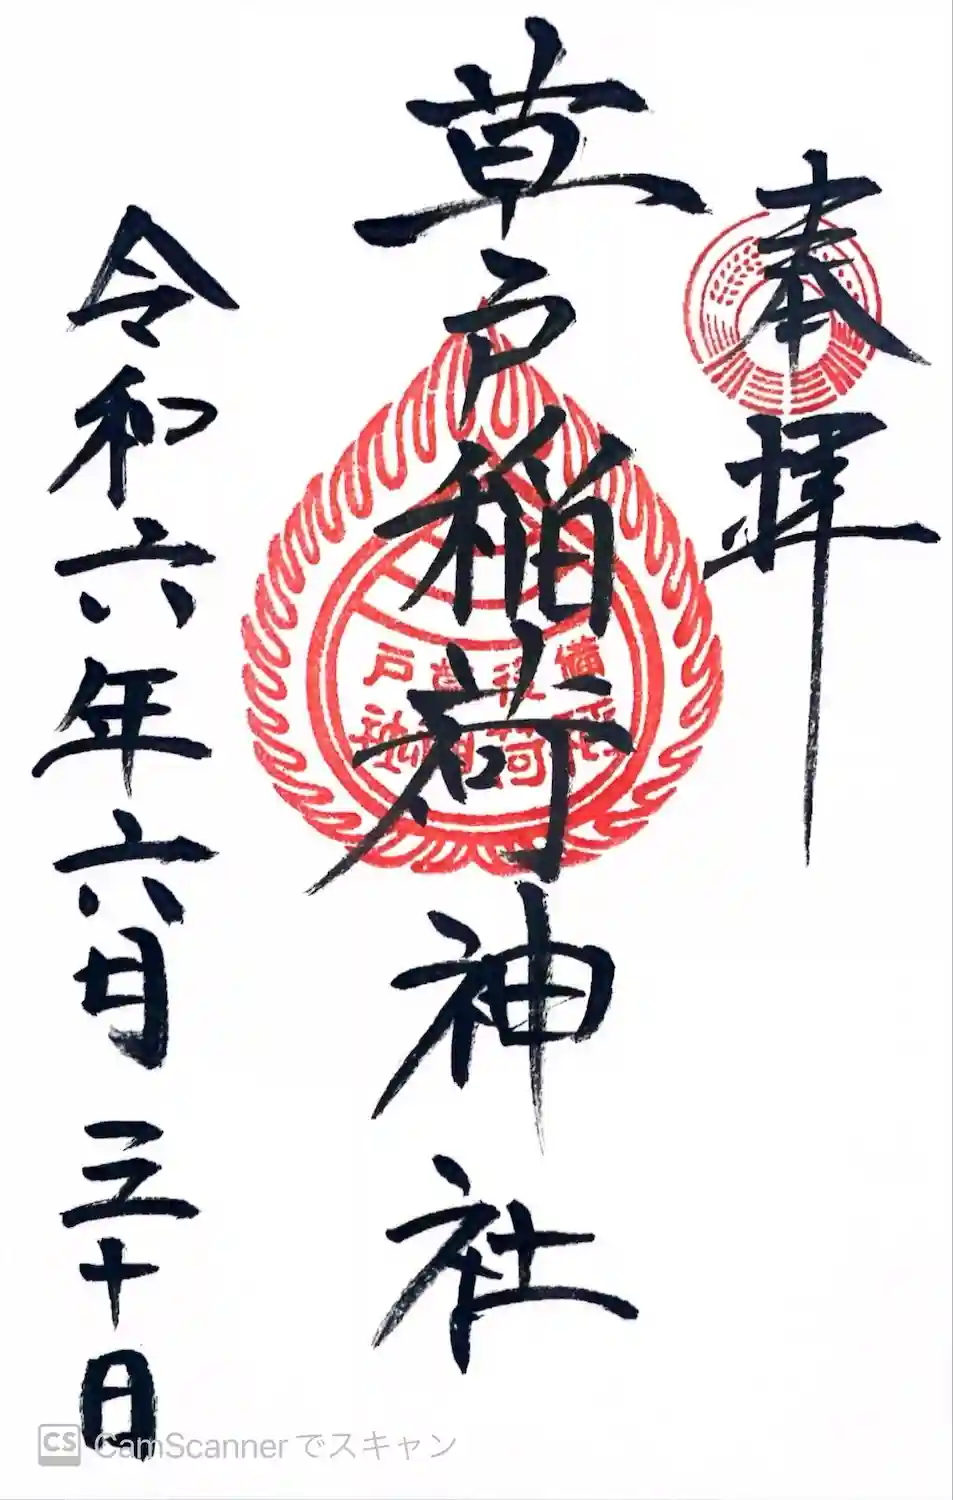 奉拝
草戸稲荷神社
備後草戸
稲荷神社
令和六年六月三十日
CS CamScannerでスキャン